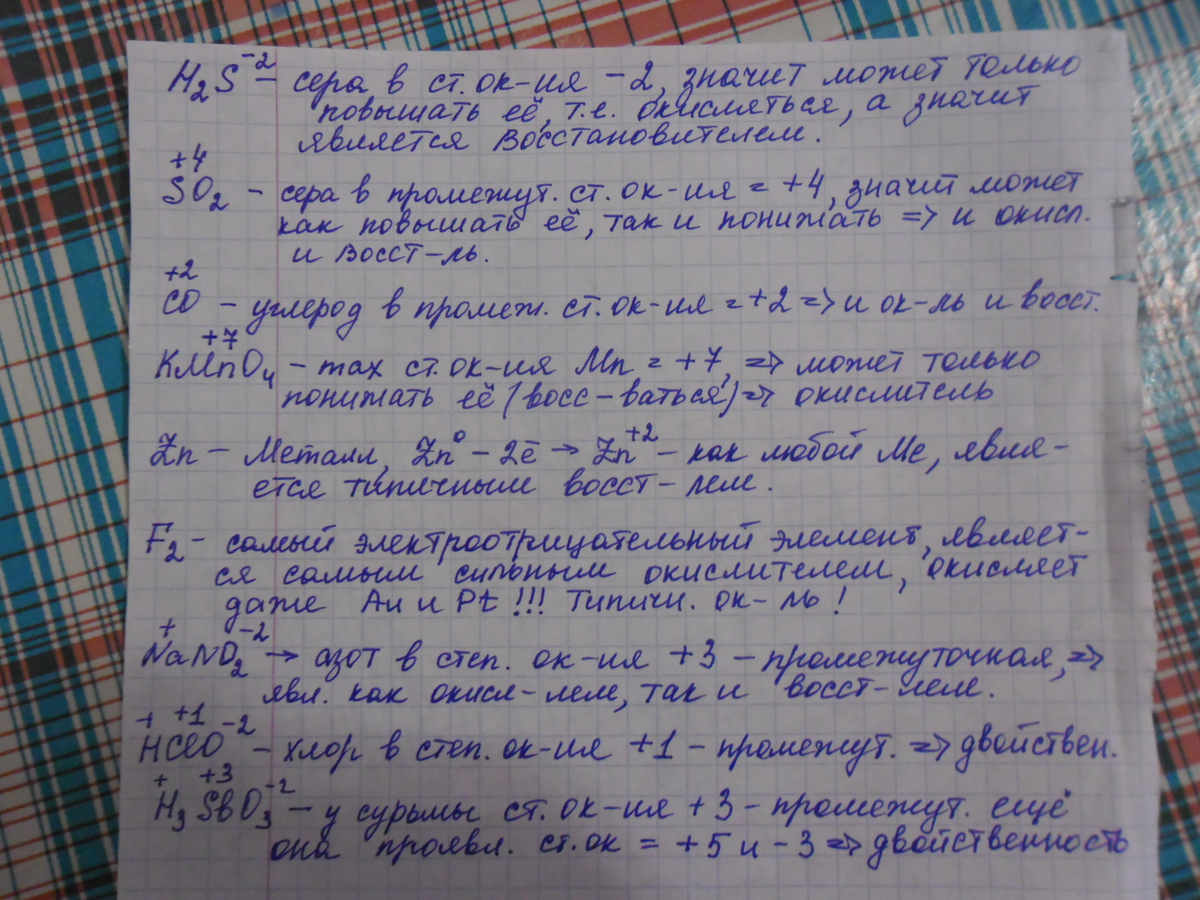 H₂S⁻² – сера в ст. ок-ия –2, значит может только
повышать её, т.е. окисляться, а значит
является восстановителем.
+4
SO₂ – сера в промежут. ст. ок-ия = +4, значит может
как повышать её, так и понижать => и окисл.
и восст-ль.
+2
CO – углерод в промеж. ст. ок-ия = +2 => и ок-ль и восст.
+7
KMnO₄ – max ст. ок-ия Mn = +7, => может только
понижать её (восс-ваться) => окислитель
Zn – Металл, Zn⁰ – 2ē → Zn⁺² – как любой Ме, явля-
ется типичным восст-лем.
F₂ – самый электроотрицательный элемент, являет-
ся самым сильным окислителем, окисляет
даже Au и Pt!!! Типичн. ок-ль!
+ –2
NaNO₂ → азот в степ. ок-ия +3 – промежуточная, =>
явл. как окисл-лем, так и восст-лем.
+ +1 –2
HClO – хлор в степ. ок-ия +1 – промежут. => двойствен.
+ +3 –2
H₃SbO₃ – у сурьмы ст. ок-ия +3 – промежут. ещё
она проявл. ст. ок = +5 и –3 => двойственность